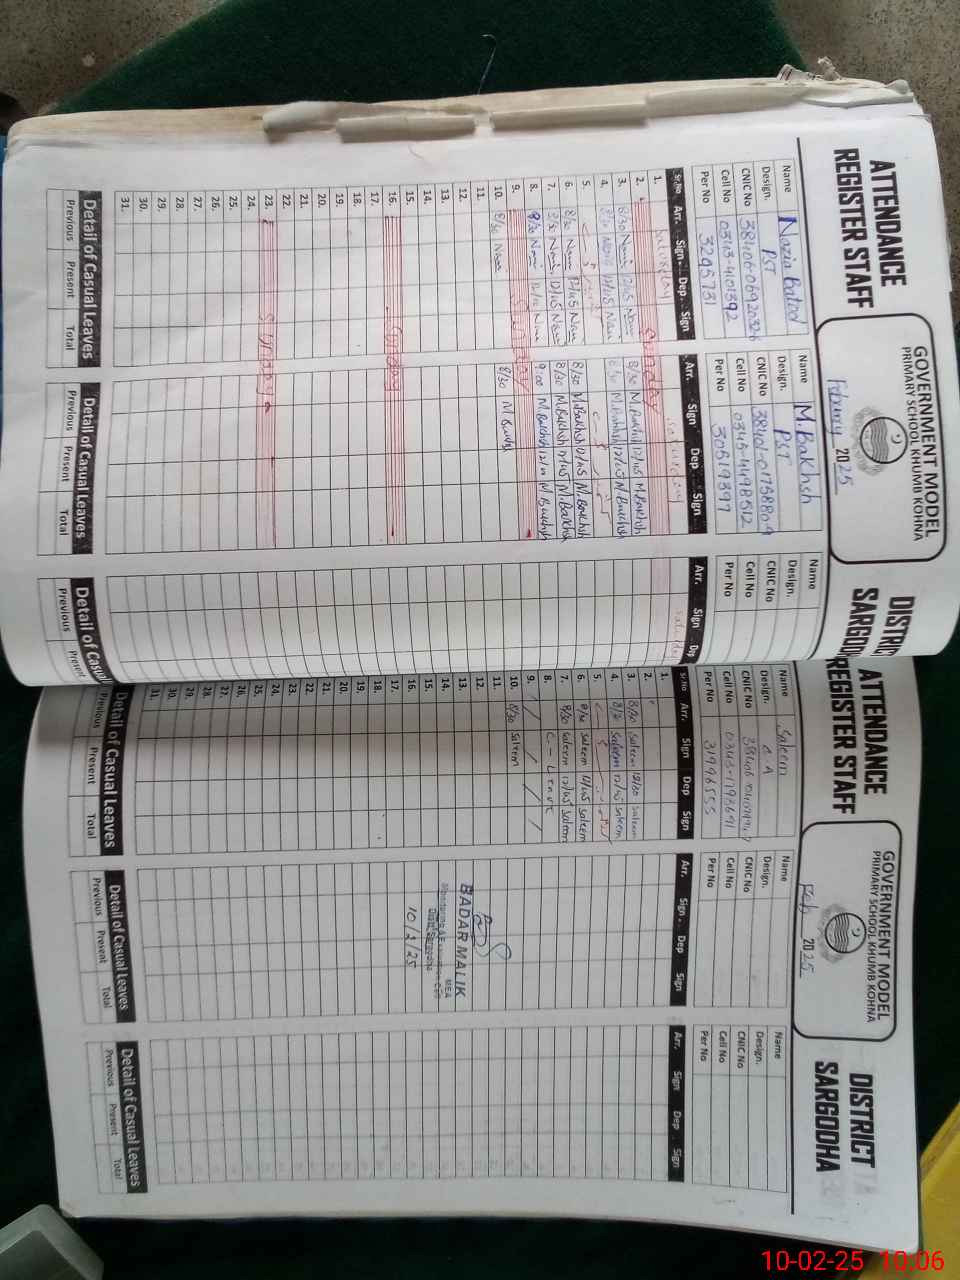 ATTENDANCE
REGISTER STAFF
GOVERNMENT MODEL
PRIMARY SCHOOL KHUMB KOHNA
February 2025
DISTRICT
SARGODHA
Name Nazia Batool
Design. PST
CNIC No
Cell No 0343-4101392
Per No
Name M.Bakhsh
Design. PST
CNIC No
Cell No 0345-4498512
Per No
Name
Design.
CNIC No
Cell No
Per No
Sr.No Arr. Sign. Dep. Sign Arr. Sign Dep Sign Arr. Sign Dep
1. Saturday Saturday
2. Sunday
3. 8/30 12/45 8/30 M.Bakhsh 12/45 M.Bakhsh
4. 8/30 12/45 8/30 M.Bakhsh 12/45 M.Bakhsh
5.
6. 8/30 12/45 8/30 M.Bakhsh 12/45 M.Bakhsh
7. 8/30 12/45 8/30 M.Bakhsh 12/45 M.Bakhsh
8. 8/30 9:00 M.Bakhsh M.Bakhsh
9. Sunday
10. 8/30 8/30 M.Bakhsh
11.
12.
13.
14.
15.
16. Sunday
17.
18.
19.
20.
21.
22.
23. Sunday
24.
25.
26.
27.
28.
29.
30.
31.
Detail of Casual Leaves Detail of Casual Leaves Detail of Casual
Previous Present Total Previous Present Total Previous Present
ATTENDANCE
REGISTER STAFF
GOVERNMENT MODEL
PRIMARY SCHOOL KHUMB KOHNA
Feb 2025
DISTRICT
SARGODHA
Name Saleem
Design. C.A
CNIC No
Cell No
Per No 31996555
Name
Design.
CNIC No
Cell No
Per No
Name
Design.
CNIC No
Cell No
Per No
Sr.No Arr. Sign Dep Sign Arr. Sign. Dep Sign Arr. Sign Dep Sign
1.
2.
3. 8/30 Saleem Saleem
4. 8/30 Saleem 12/45 Saleem
5.
6. 8/30 Saleem 12/45 Saleem
7. 8/30 Saleem 12/45 Saleem
8. C-Leave
9.
10. 8/30 Saleem
11.
12.
13.
14.
15.
16.
17.
18.
19.
20.
21.
22.
23.
24.
25.
26.
27.
28.
29.
30.
31.
BADAR MALIK
MEA
Monitoring & Evaluation Cell
Distt. Sargodha
10/2/25
Detail of Casual Leaves Detail of Casual Leaves Detail of Casual Leaves
Previous Present Total Previous Present Total Previous Present Total
10-02-25 10:06